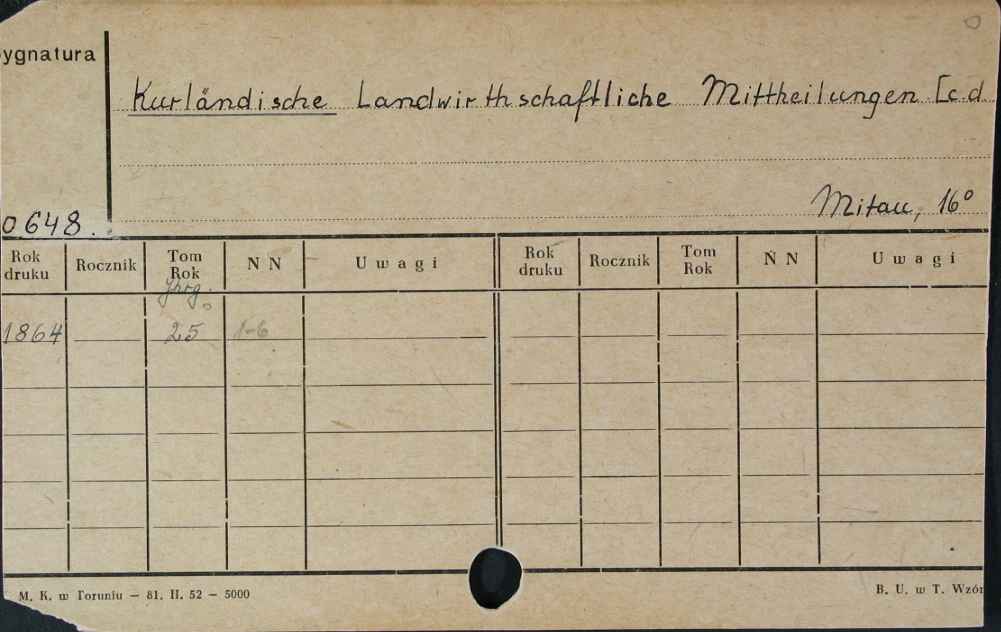 ygnatura
Kurländische Landwirthschaftliche Mittheilungen [c.d
0648.
Mitau, 16°
Rok druku Rocznik Tom Rok N N Uwagi Rok druku Rocznik Tom Rok N N Uwagi
Jhrg.
1864 25 1-6
M. K. w Toruniu – 81. II. 52 – 5000
B. U. w T. Wzór